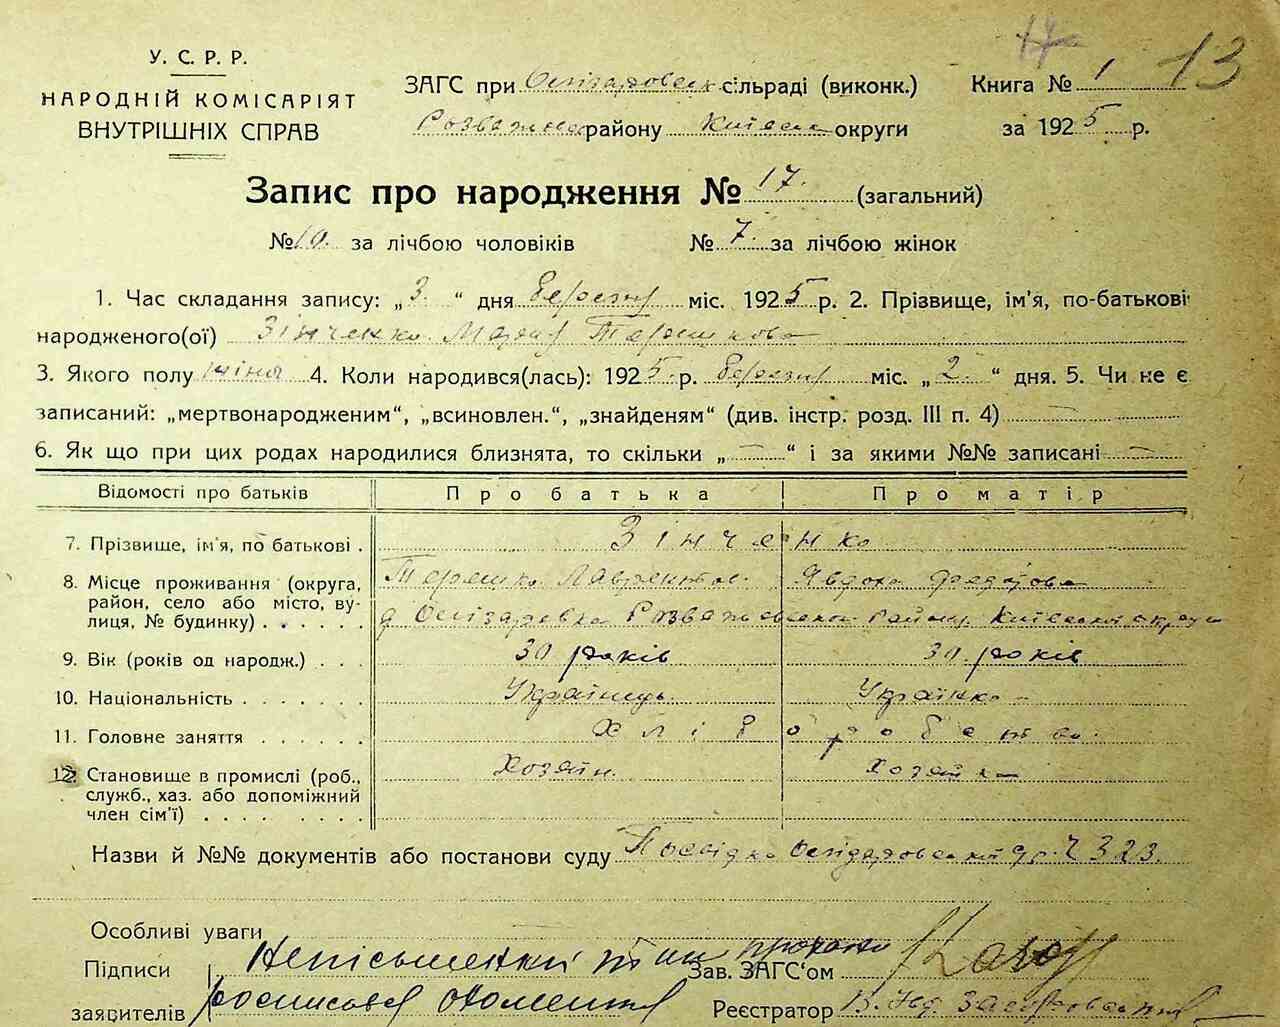 17 13
У. С. Р. Р.
НАРОДНІЙ КОМІСАРІЯТ
ВНУТРІШНІХ СПРАВ
ЗАГС при сільраді (виконк.) Книга № 1
району округи за 1925 р.
Запис про народження № 17. (загальний)
№ 10. за лічбою чоловіків № 7. за лічбою жінок
1. Час складання запису: „3.“ дня березня міс. 1925 р. 2. Прізвище, ім'я, по-батькові
народженого(ої) Зінченко Мария Терешкова
3. Якого полу жіноч 4. Коли народився(лась): 1925 р. березня міс. „2.“ дня. 5. Чи не є
записаний: „мертвонародженим“, „всиновлен.“, „знайденям“ (див. інстр. розд. III п. 4) —
6. Як що при цих родах народилися близнята, то скільки „—“ і за якими №№ записані —
Відомості про батьків Про батька Про матір
7. Прізвище, ім'я, по батькові . Зінченко
8. Місце проживання (округа, Терешко Явдоха
район, село або місто, ву-
лиця, № будинку) . . . . . . .
9. Вік (років од народж.) . . . 30 років 30 років
10. Національність . . . . . . . Українець Українка
11. Головне заняття . . . . . . Хліборобство
12. Становище в промислі (роб., Хозяін Хозяйка
служб., хаз. або допоміжний
член сім'ї) . . . . . . . .
Назви й №№ документів або постанови суду Посвідка Ч 323.
Особливі уваги
Підписи Неписьменний Зав. ЗАГС'ом
заявителів Реєстратор